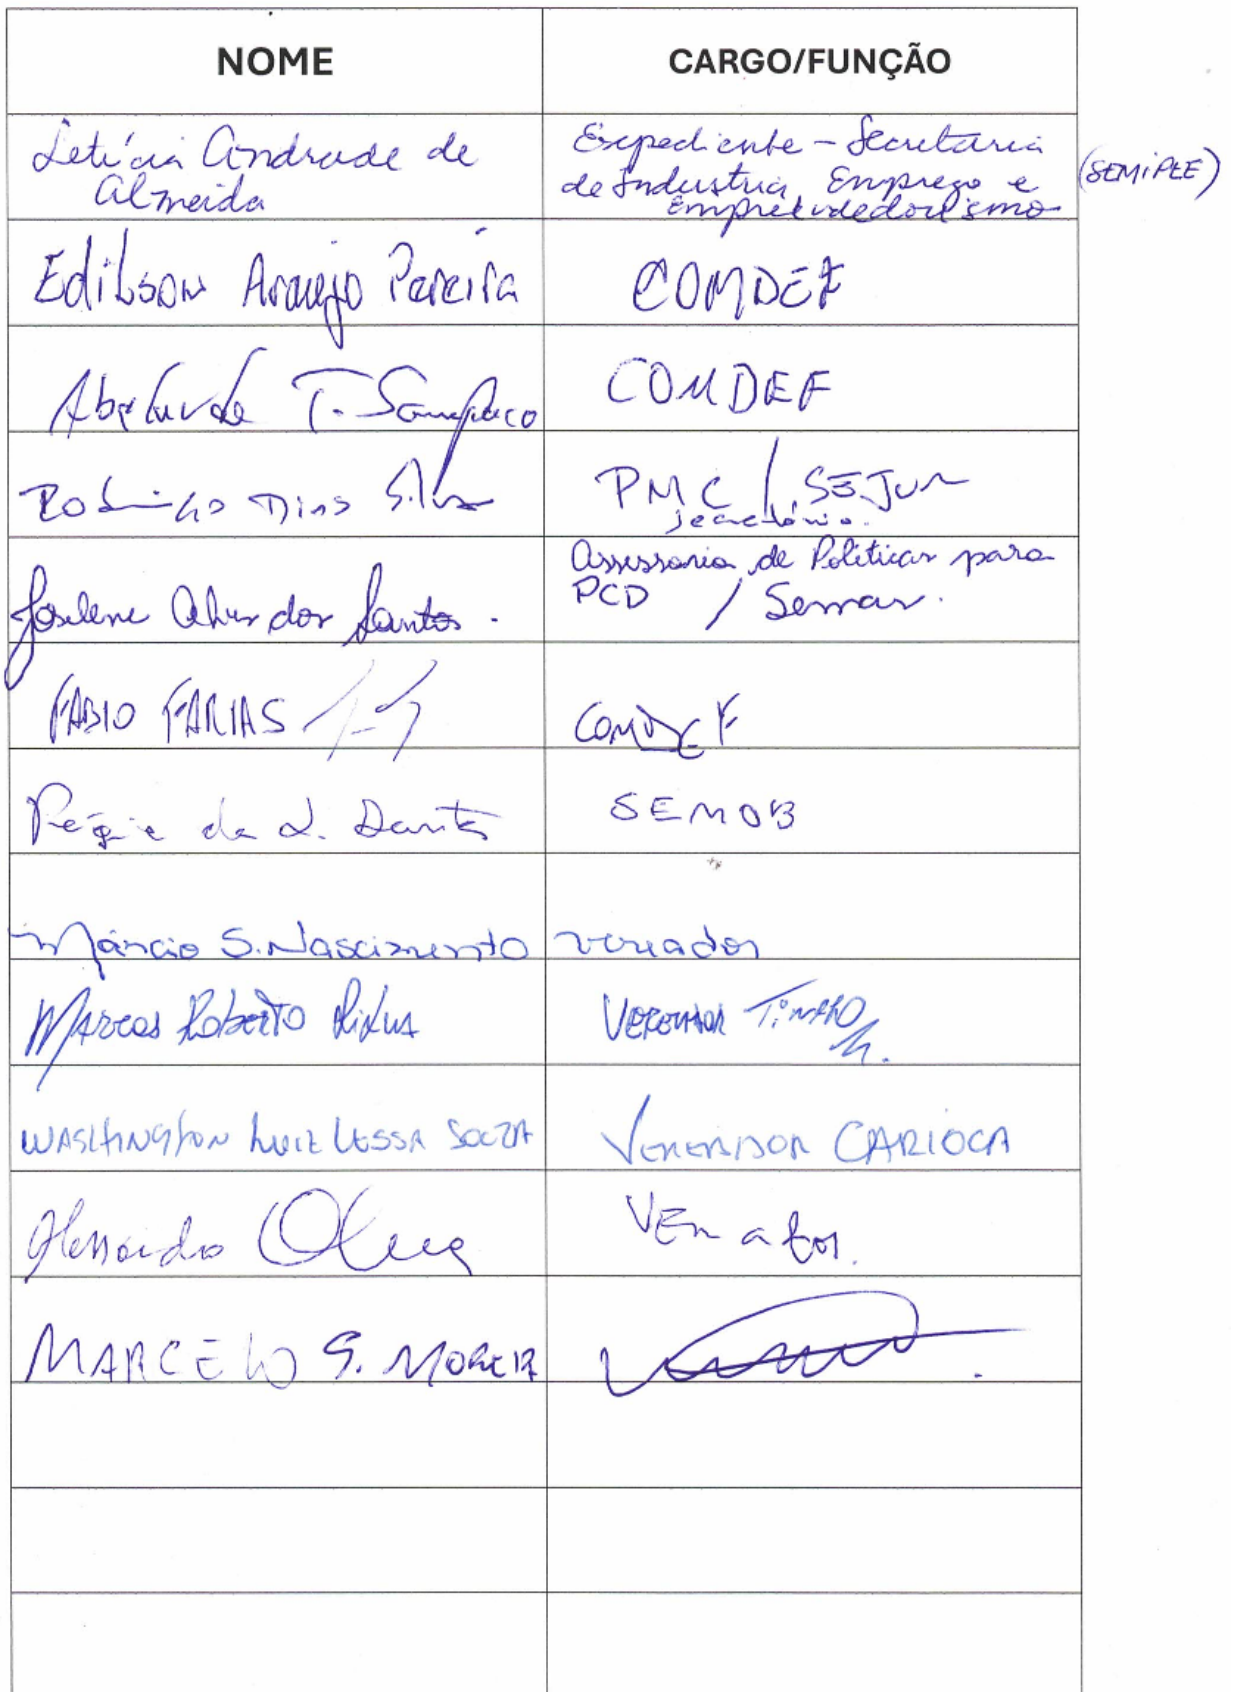 NOME CARGO/FUNÇÃO
Letícia Andrade de Expediente - Secretaria
Almeida de Industria, Emprego e (SEMIPEE)
Empreendedorismo
Edilson Araujo Pereira COMDEF
T. Sampaio COMDEF
Rodrigo Dias Silva PMC / SEJUR
secretário.
Joselene Alves dos Santos. Assessoria de Políticas para
PCD / Semas.
FABIO FARIAS COMDEF
da L. Dantas SEMOB
Márcio S. Nascimento vereador
Marcos Roberto VEREADOR Timão
WASHINGTON LUIZ LESSA SOUZA VEREADOR CARIOCA
Alessandro VEREADOR.
MARCELO S. MOREIRA